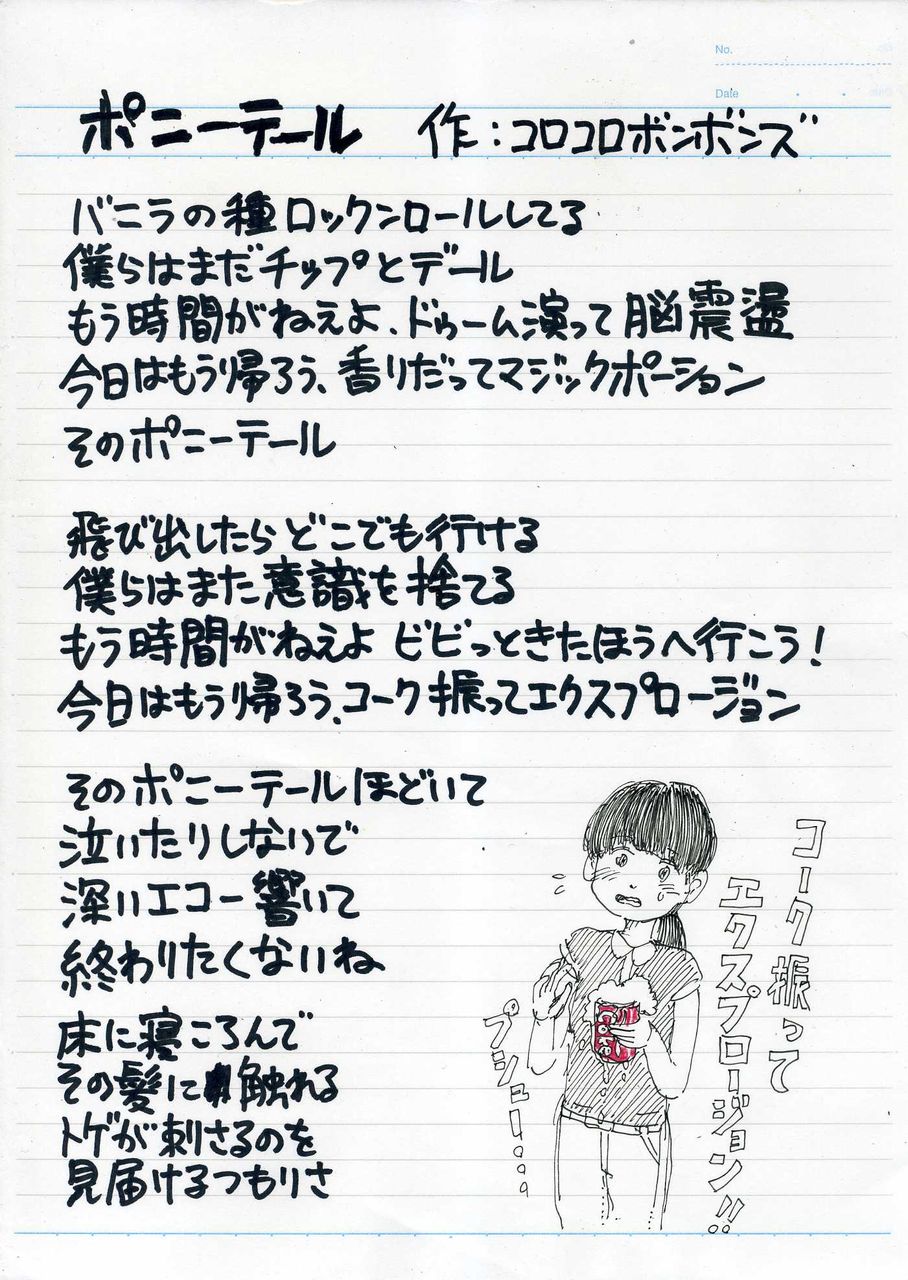 No.
Date
ポニーテール 作：コロコロボンボンズ
バニラの種ロックンロールしてる
僕らはまだチップとデール
もう時間がねえよ、ドゥーム演って脳震盪
今日はもう帰ろう、香りだってマジックポーション
そのポニーテール
飛び出したらどこでも行ける
僕らはまた意識を捨てる
もう時間がねえよ ビビっときたほうへ行こう！
今日はもう帰ろう、コーク振ってエクスプロージョン
そのポニーテールほどいて
泣いたりしないで
深いエコー響いて
終わりたくないね
床に寝ころんで
その髪に触れる
トゲが刺さるのを
見届けるつもりさ
コーク振って
エクスプロージョン!!
プシュー...。。
Coke